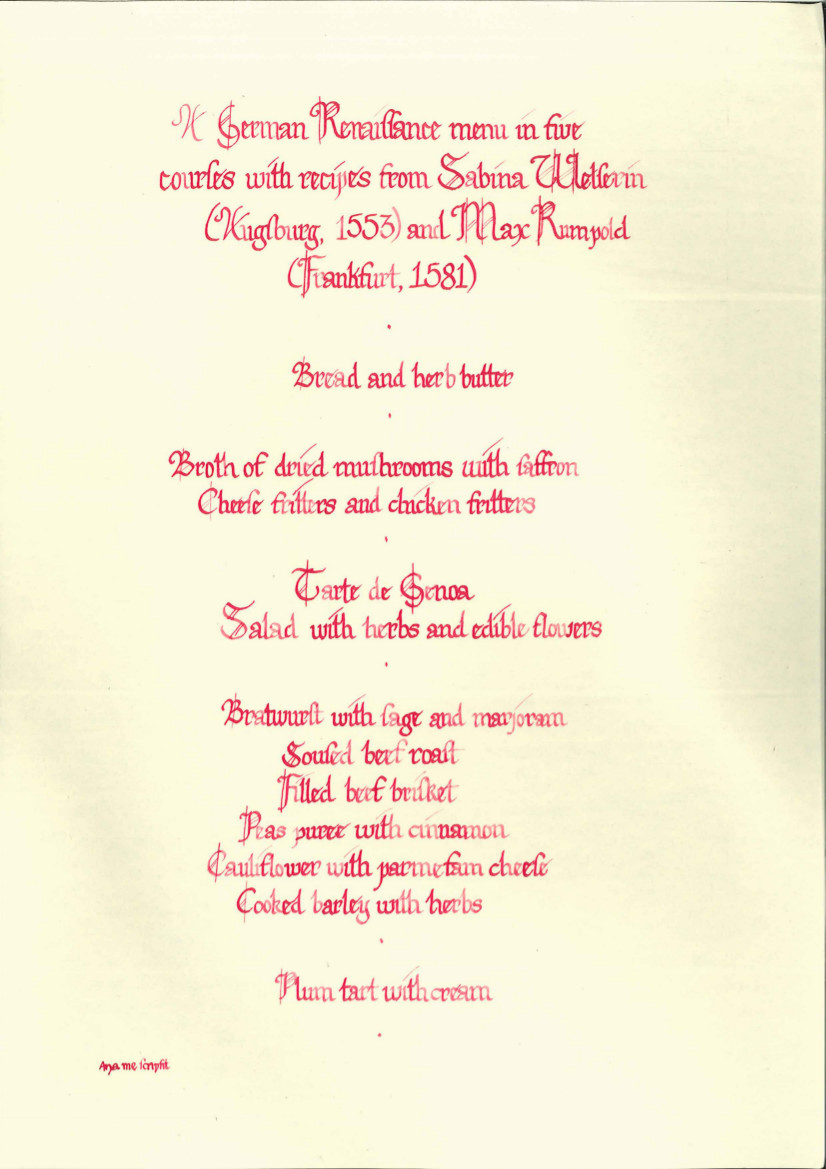 A German Renaiſſance menu in five
courſes with recipes from Sabina Welſerin
(Augſburg, 1553) and Max Rumpold
(Frankfurt, 1581)
.
Bread and herb butter
.
Broth of dried muſhrooms with ſaffron
Cheeſe fritters and chicken fritters
.
Tarte de Genoa
Salad with herbs and edible flowers
.
Bratwurſt with ſage and marjoram
Souſed beef roaſt
Filled beef briſket
Peas puree with cinnamon
Cauliflower with parmeſam cheeſe
Cooked barley with herbs
.
Plum tart with cream
.
Arya me ſcripſit